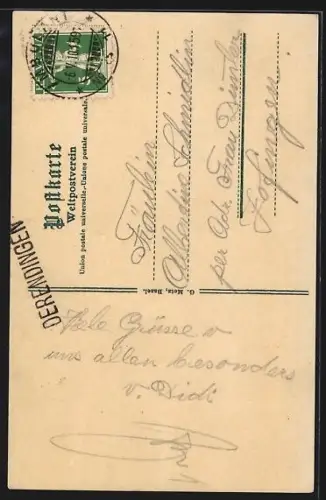 Postkarte
Weltpostverein
Union postale universelle.-Unione postale universale.
DERENDINGEN
Fräulein
Albertine Schmidlin
per Adr. Frau
Zofingen
G. Metz, Basel.
Viele Grüsse v
uns allen besonders
v. Didi